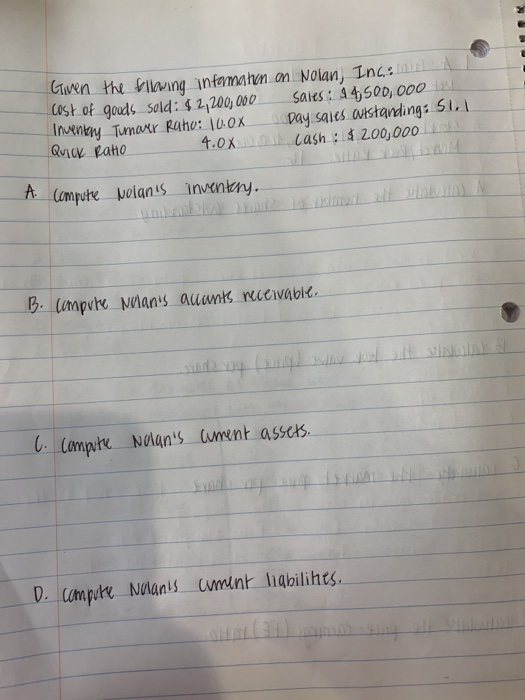 Given the following information on Nolan, Inc.:
Cost of goods sold: $2,200,000 Sales: $4,500,000
Inventory Turnover Ratio: 10.0X Day sales outstanding: 51.1
Quick Ratio 4.0X Cash: $200,000
A. Compute Nolan's inventory.
B. Compute Nolan's accounts receivable.
C. Compute Nolan's current assets.
D. Compute Nolan's current liabilities.